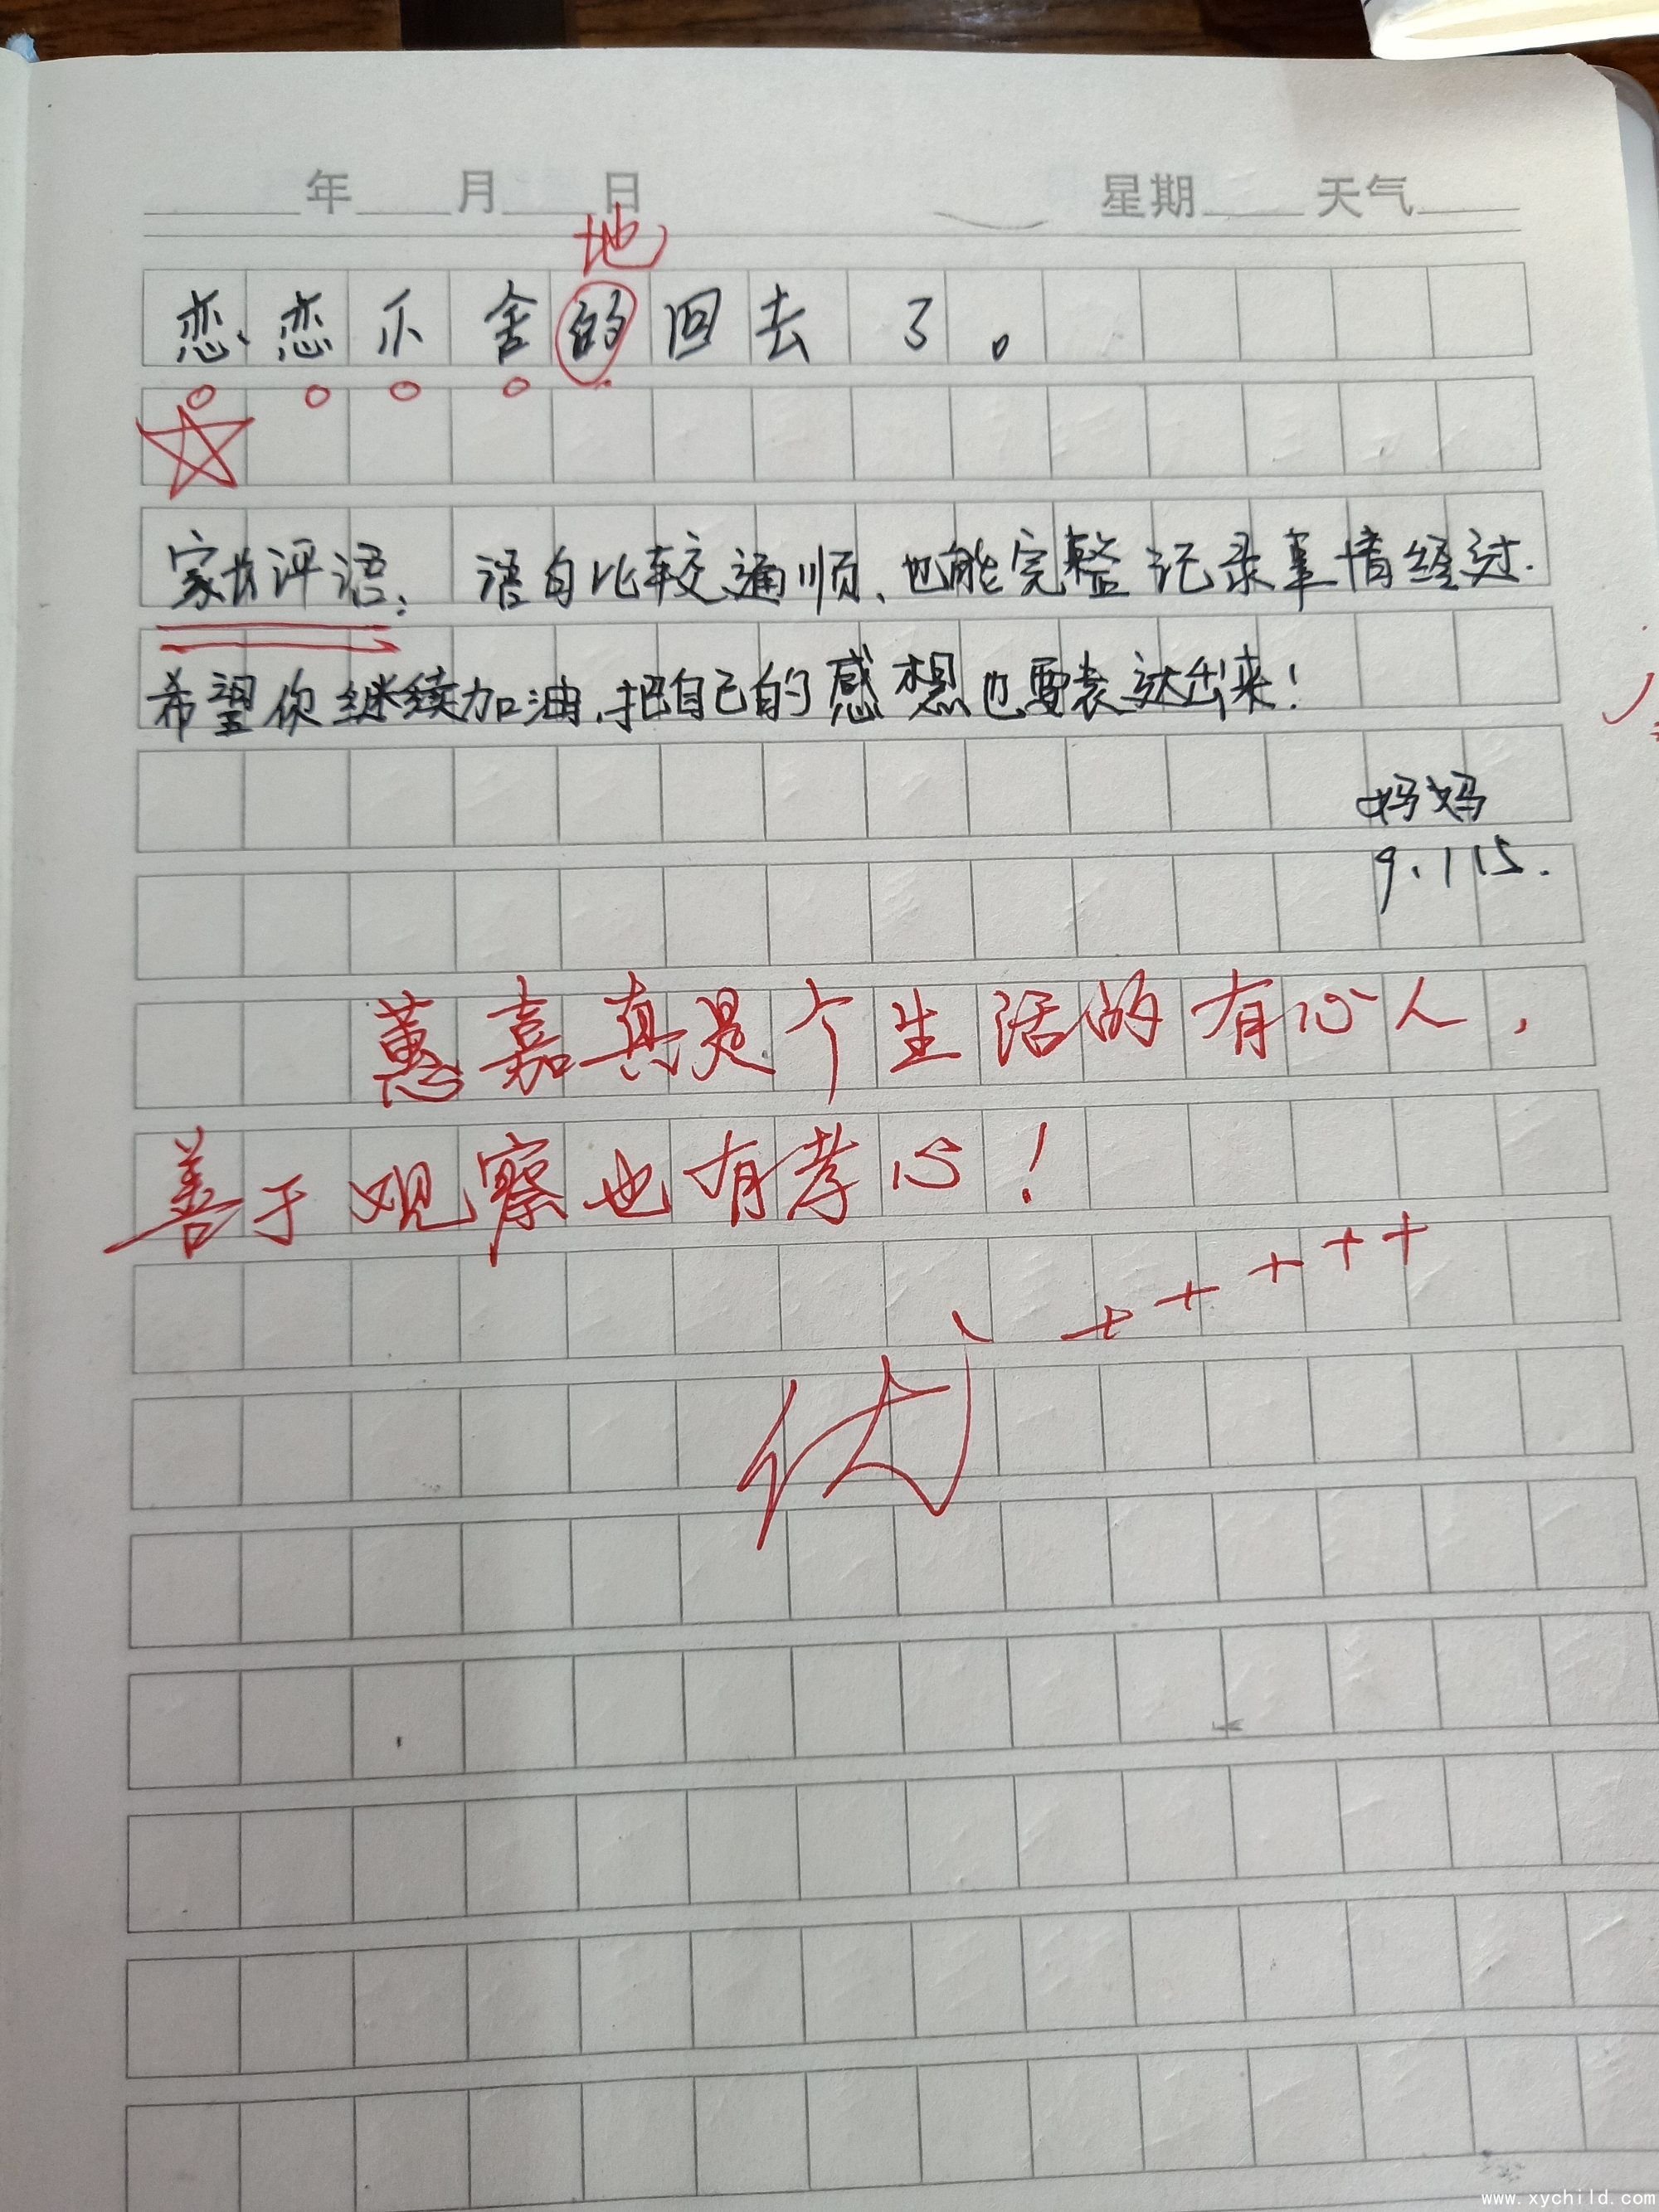 年 月 日 星期 天气
地
恋恋不舍的回去了。
家长评语：语句比较通顺、也能完整记录事情经过.
希望你继续加油,把自己的感想也要表达出来！
妈妈
9.115.
蕙嘉真是个生活的有心人，
善于观察也有孝心！
优+++++
www.xychild.com